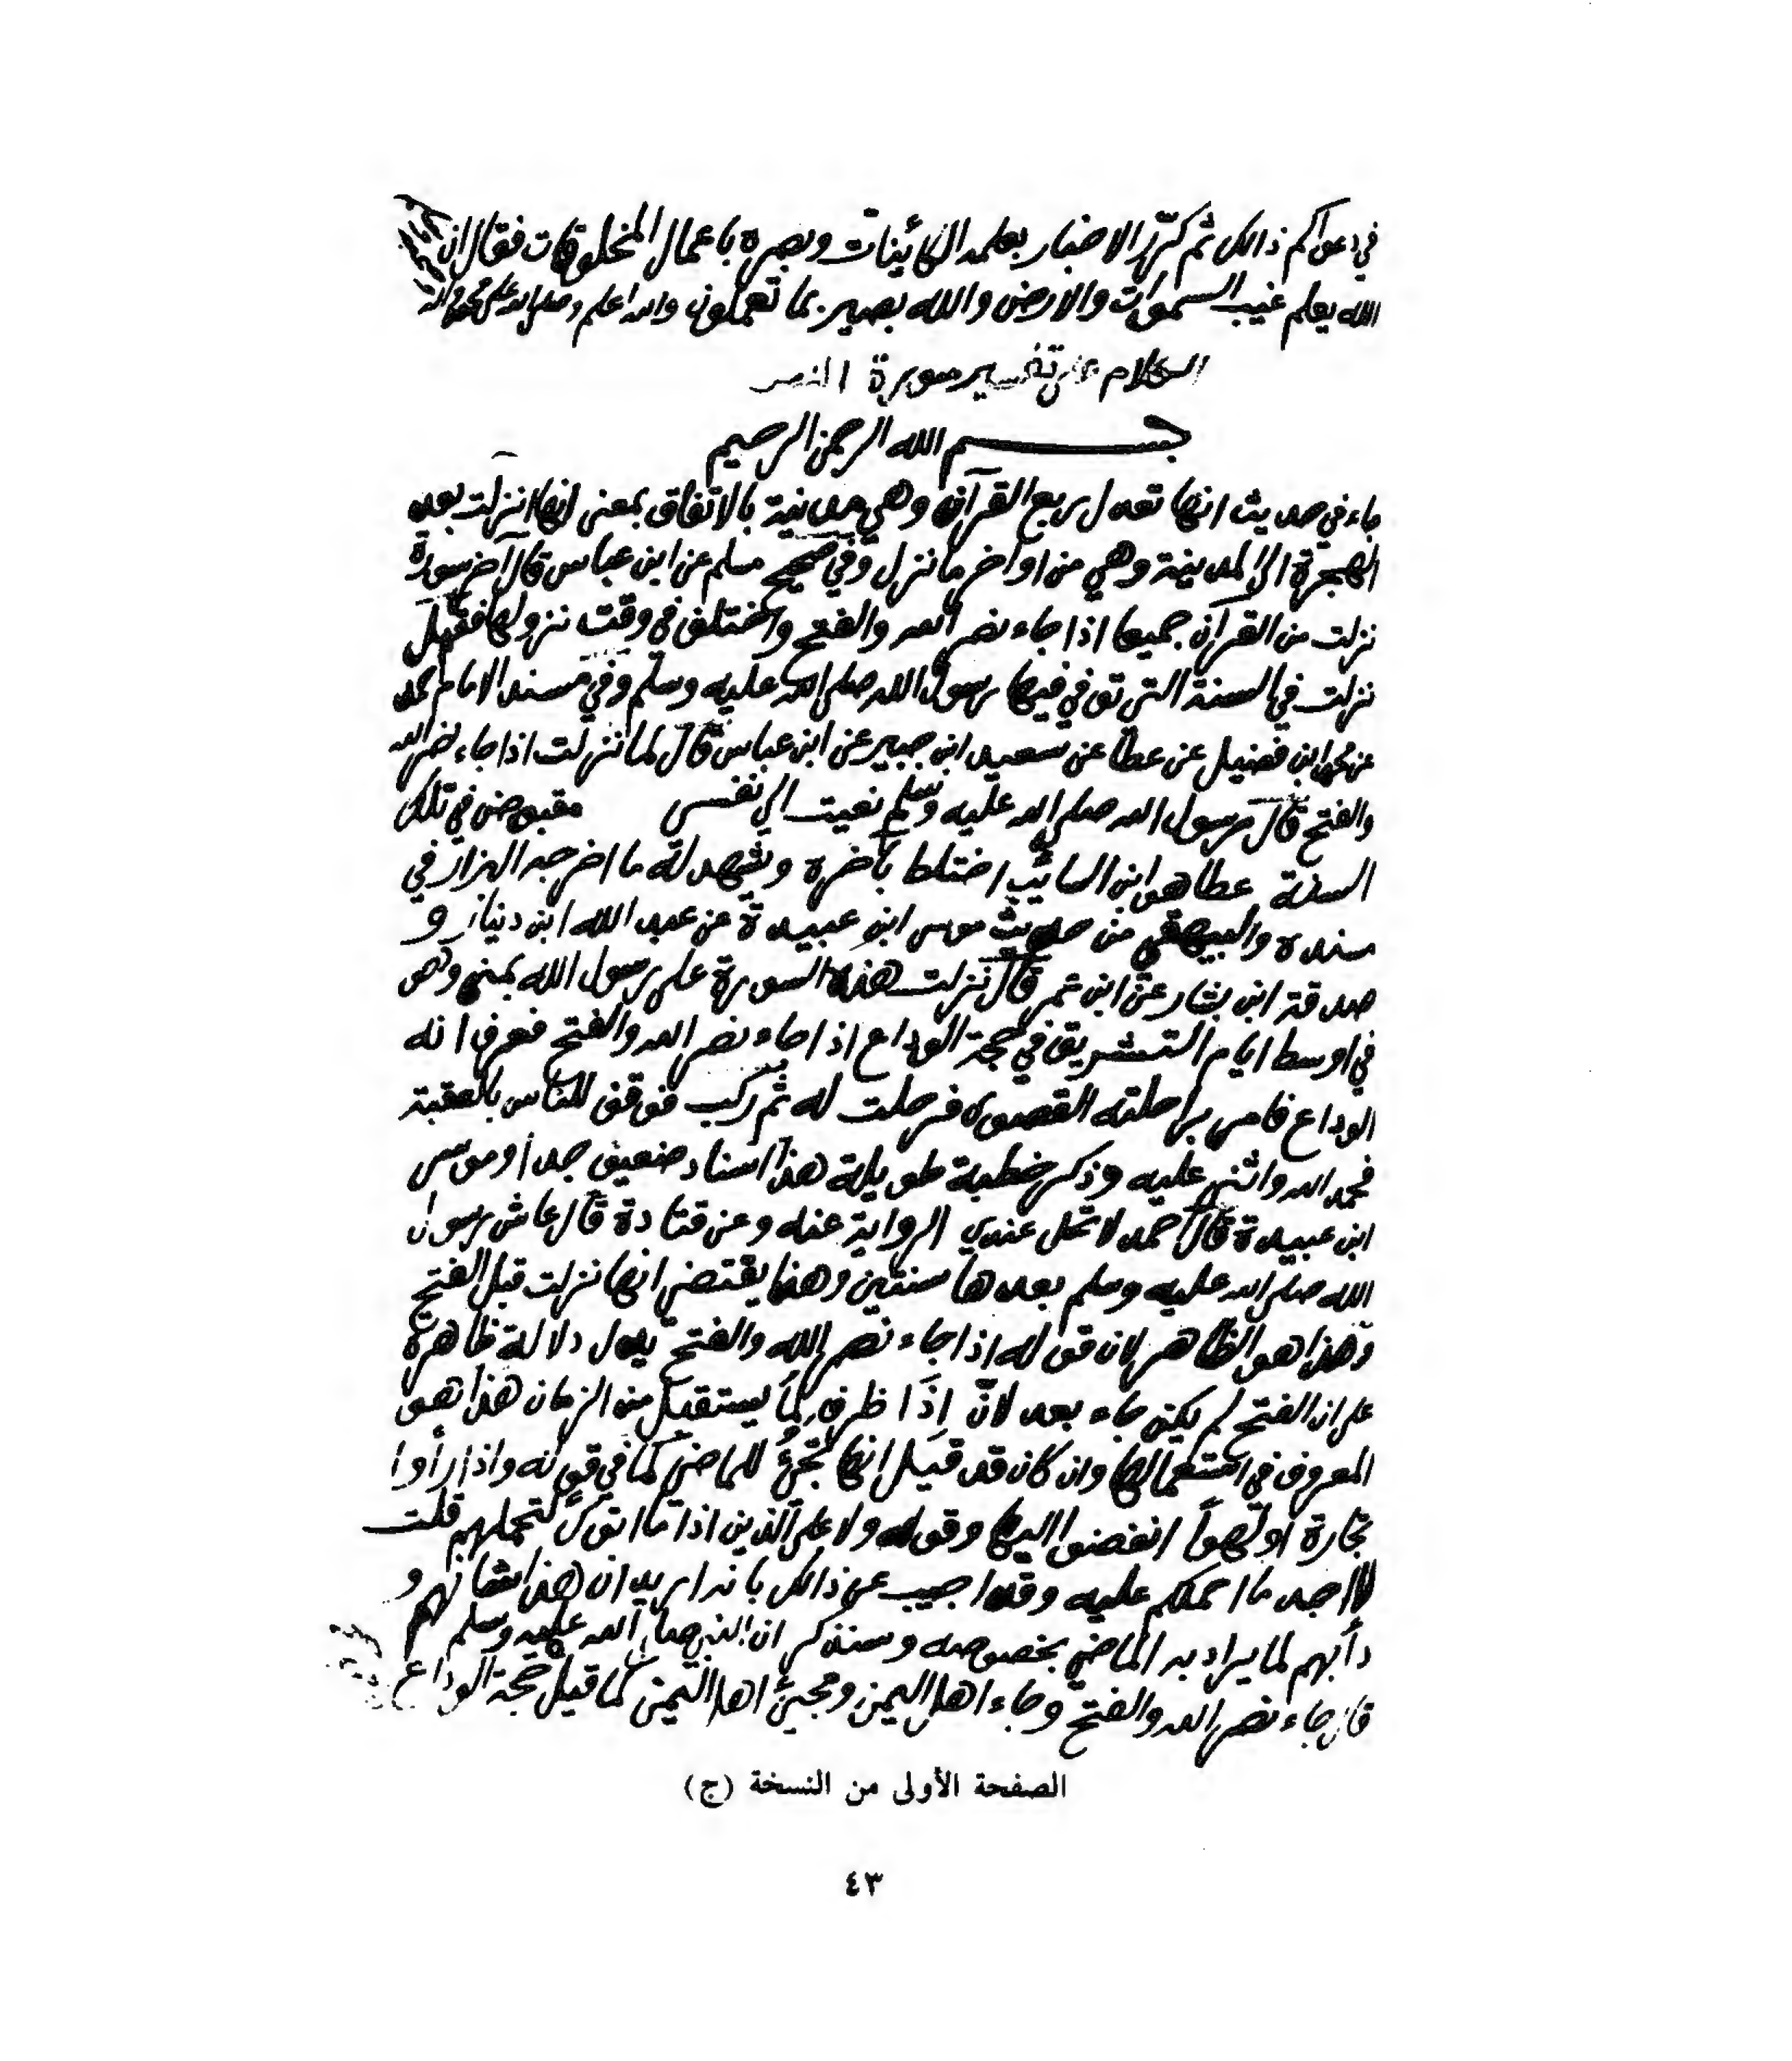 في دعواكم ذالك ثم كرّر الاخبار بعلمه الكائينات وبصره باعمال المخلوقات فقال ان
الله يعلم غيب السموات والارض والله بصير بما تعملون والله اعلم وصلى الله على محمد واله
الكلام على تفسير سورة النصر
بسم الله الرحمن الرحيم
جاء في حديث انها تعدل ربع القرآن وهي مدينية بالاتفاق بمعنى انها نزلت بعد
الهجرة الى المدينة وهي من اواخر ما نزل وفي صحيح مسلم عن ابن عباس قال آخر سورة
نزلت من القرآن جميعا اذا جاء نصر الله والفتح واختلف في وقت نزولها فقيل
نزلت في السنة التي توفي فيها رسول الله صلى الله عليه وسلم وفي مسند الامام احمد
عن محمد ابن فضيل عن عطا عن سعيد ابن جبير عن ابن عباس قال لما نزلت اذا جاء نصر الله
والفتح قال رسول الله صلى الله عليه وسلم نعيت الي نفسي مقبوض في تلك
السنة عطا هو ابن السائب اختلط بآخره ويشهد له ما اخرجه البزار في
مسنده والبيهقي من حديث موسى ابن عبيدة عن عبد الله ابن دينار و
صدقة ابن بشار عن ابن عمر قال نزلت هذه السورة على رسول الله بمنى وهو
في اوسط ايام التشريق في حجة الوداع اذا جاء نصر الله والفتح فعرف انه
الوداع فامر براحلته القصوى فرحلت له ثم ركب فوقف للناس بالعقبة
فحمد الله واثنى عليه وذكر خطبة طويلة هذا اسناد ضعيف جدا وموسى
ابن عبيدة قال احمد لا تحل عندي الرواية عنه وعن قتادة قال عاش رسول
الله صلى الله عليه وسلم بعدها سنتين وهذا يقتضي انها نزلت قبل الفتح
وهذا هو الظاهر لان قوله اذا جاء نصر الله والفتح يدل دلالة ظاهرة
على ان الفتح لم يكن جاء بعد لانّ إِذَا ظرف لِمَا يستقبل من الزمان هذا هو
المعروف في استعمالها وان كان قد قيل انها تجيُّ للماضي كما في قوله واذا رأوا
تجارة أو لهواً انفضوا اليها وقوله ولا على الذين اذا ما اتوك لتحملهم قلت
لا اجد ما احملكم عليه وقد اجيب عن ذالك بانه اريد ان هذا شانهم و
دأبهم لما يراد به الماضي بخصوصه وسنذكر ان النبي صلى الله عليه وسلم
قال جاء نصر الله والفتح وجاء اهل اليمن ومجيئ اهل اليمن كما قيل حجة الوداع
الصفحة الأولى من النسخة (ج)
٤٣